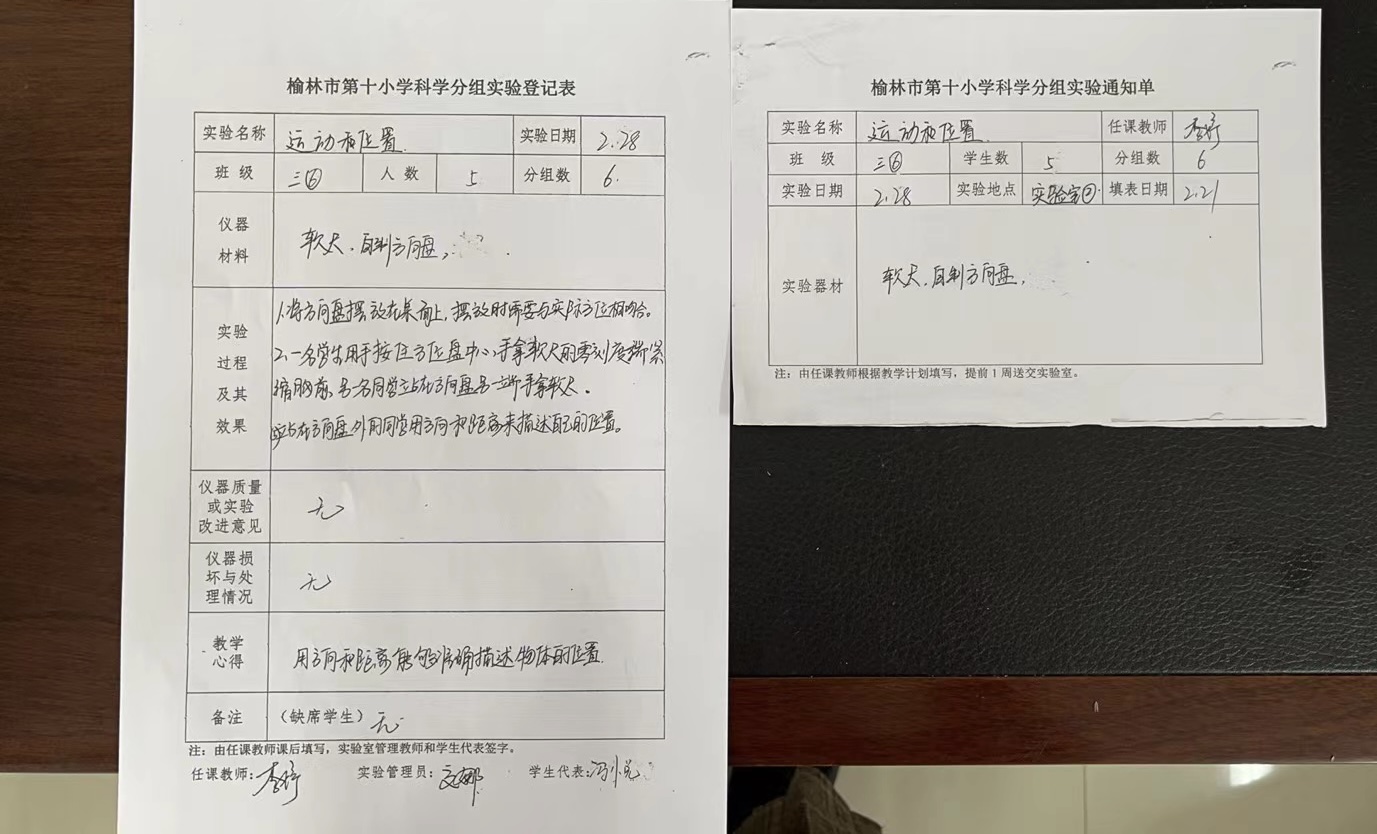 榆林市第十小学科学分组实验登记表
实验名称 运动和位置 实验日期 2.28
班 级 三⑥ 人 数 5 分组数 6.
仪器
材料
软尺、自制方向盘,
实验
过程
及其
效果
1.将方向盘摆放在桌面上,摆放时需要与实际方位相吻合。
2.一名学生用手按住方位盘中心,手拿软尺的零刻度端紧
缩胸前,另一名同学站在方向盘另一端手拿软尺。
站在方向盘外的同学用方向和距离来描述自己的位置。
仪器质量
或实验
改进意见
无
仪器损
坏与处
理情况
无
教学
心得
用方向和距离能够准确描述物体的位置.
备注 (缺席学生) 无
注:由任课教师课后填写,实验室管理教师和学生代表签字。
任课教师: 李婷 实验管理员: 文娜 学生代表:
榆林市第十小学科学分组实验通知单
实验名称 运动和位置 任课教师 李婷
班 级 三⑥ 学生数 5 分组数 6
实验日期 2.28 实验地点 实验室② 填表日期 2.21
实验器材 软尺、自制方向盘,
注:由任课教师根据教学计划填写,提前1周送交实验室。